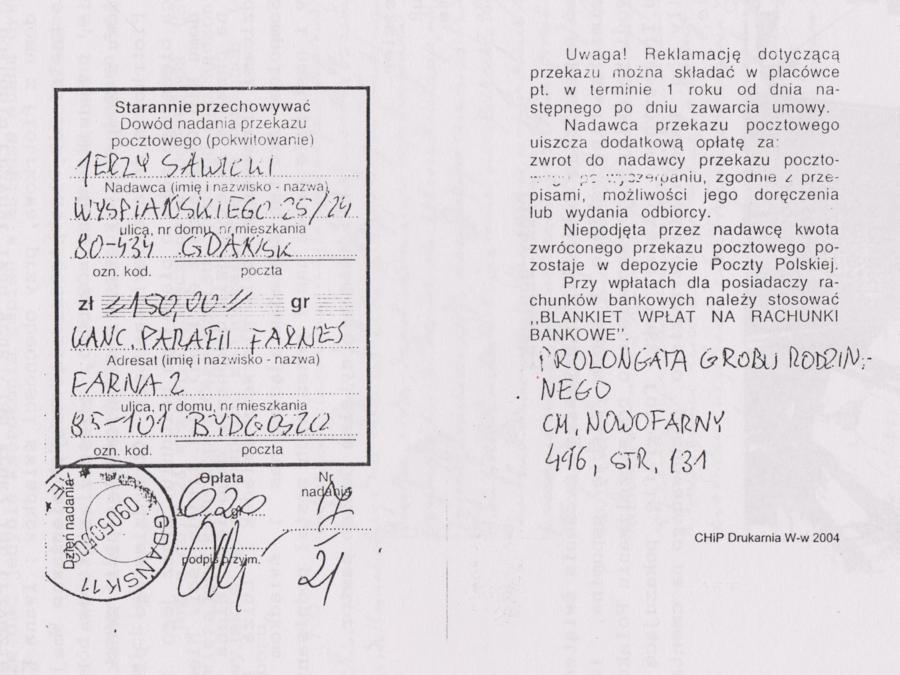 Starannie przechowywać
Dowód nadania przekazu
pocztowego (pokwitowanie)
JERZY SAWICKI
Nadawca (imię i nazwisko - nazwa)
WYSPIAŃSKIEGO 25/24
ulica, nr domu, nr mieszkania
80-434 GDAŃSK
ozn. kod. poczta
zł =150,00= gr
KANC. PARAFII FARNEJ
Adresat (imię i nazwisko - nazwa)
FARNA 2
ulica, nr domu, nr mieszkania
85-101 BYDGOSZCZ
ozn. kod. poczta
Opłata Nr
nadania
zł gr
podpis przyjm.
21
Dzień nadania
GDAŃSK 11
Uwaga! Reklamację dotyczącą
przekazu można składać w placówce
pt. w terminie 1 roku od dnia na-
stępnego po dniu zawarcia umowy.
Nadawca przekazu pocztowego
uiszcza dodatkową opłatę za:
zwrot do nadawcy przekazu poczto-
wego po wyczerpaniu, zgodnie z prze-
pisami, możliwości jego doręczenia
lub wydania odbiorcy.
Niepodjęta przez nadawcę kwota
zwróconego przekazu pocztowego po-
zostaje w depozycie Poczty Polskiej.
Przy wpłatach dla posiadaczy ra-
chunków bankowych należy stosować
,,BLANKIET WPŁAT NA RACHUNKI
BANKOWE".
PROLONGATA GROBU RODZIN-
NEGO
CM. NOWOFARNY
496, STR. 131
CHiP Drukarnia W-w 2004